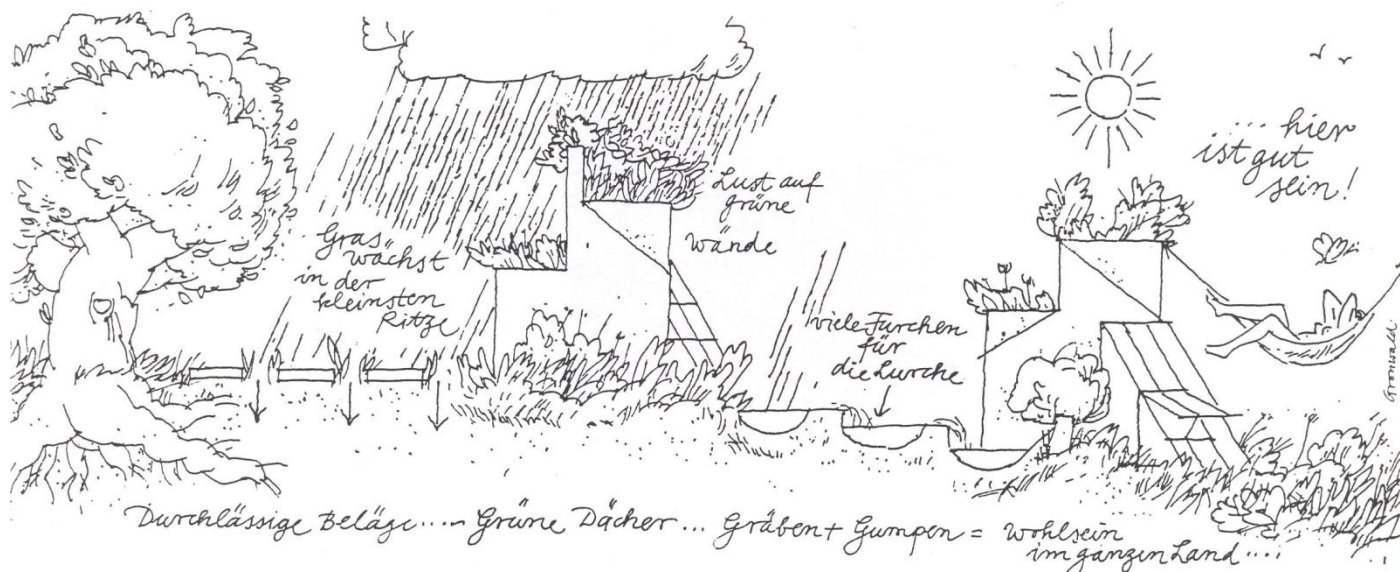 Gras
wächst
in der
kleinsten
Ritze
Lust auf
grüne
Wände
viele Furchen
für
die Lurche
... hier
ist gut
sein!
Durchlässige Beläge..... Grüne Dächer... Gräben + Gumpen = Wohlsein
im ganzen Land....